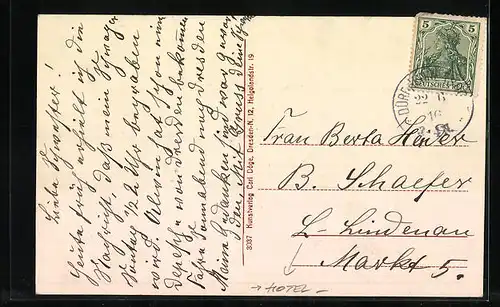 Liebe Schwester!
Heute früh erhielt ich die
Nachricht, daß mein Schwager
Sonntag ½2 Uhr begraben
wird. Alwin hat schon eine
Depesche von Dresden bekommen
Fahre Sonnabend nach Dresden
Meine Gedanken sind
Mit Gruss deine
3307 Kunstverlag Carl Döge, Dresden-N. 12, Helgolandstr. 19
5 5
DEUTSCHES
22 6
16
Frau Berta
B. Schaefer
L-Lindenau
Markt 5.
→ HOTEL -